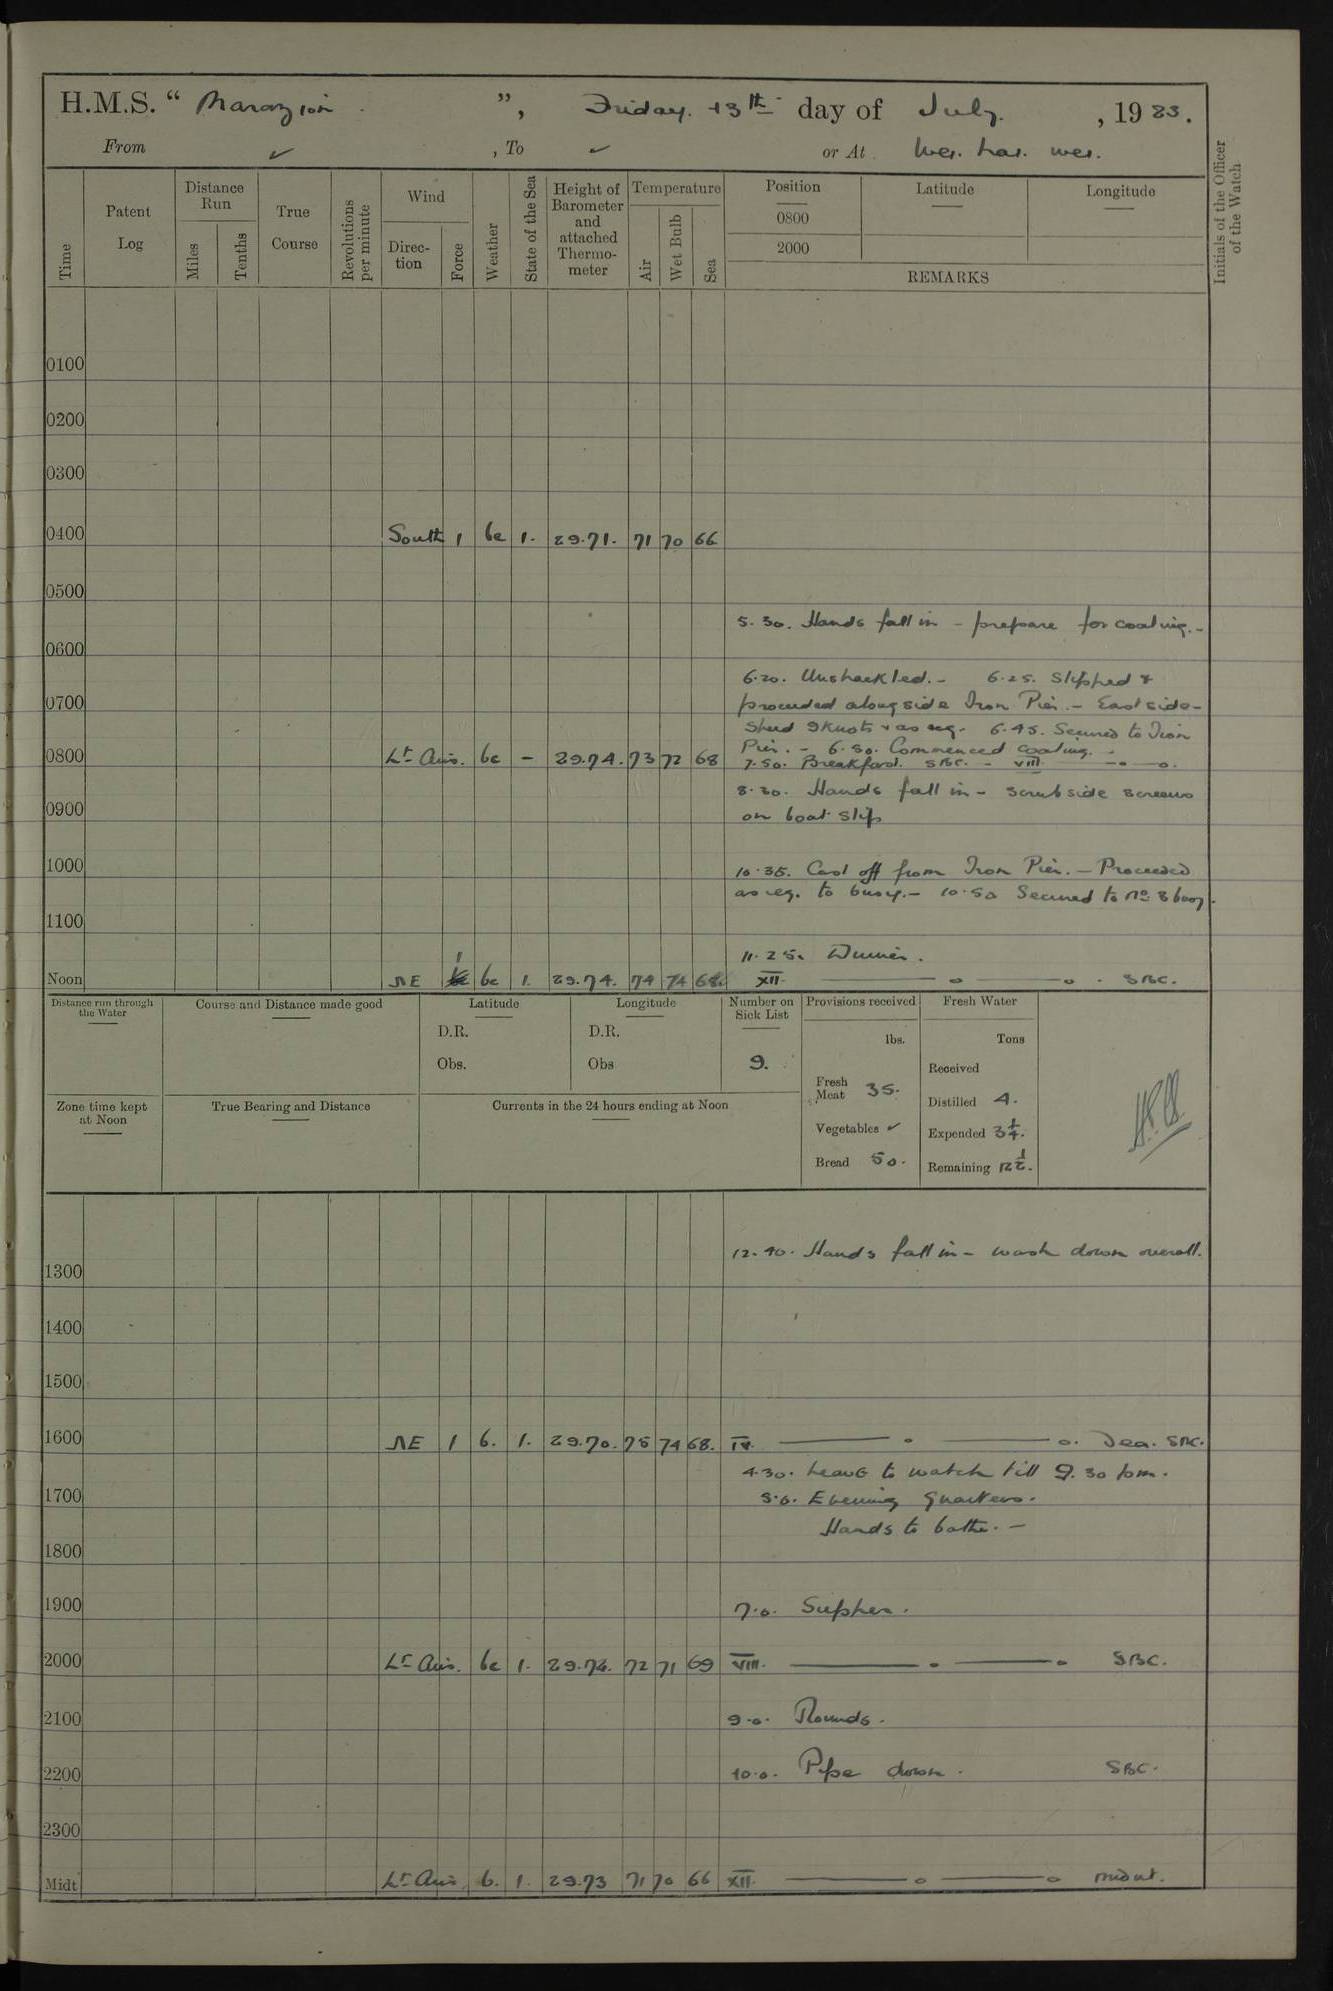 H.M.S. “ Marazion ”, Friday. 13th day of July. , 1923.
From ✓ , To ✓ or At Wei. hai. wei.
Initials of the Officer of the Watch
Time
Patent Log
Distance Run
Miles
Tenths
True Course
Revolutions per minute
Wind
Direc- tion
Force
Weather
State of the Sea
Height of Barometer and attached Thermo- meter
Temperature
Air
Wet Bulb
Sea
Position
0800
2000
Latitude
Longitude
REMARKS
0100
0200
0300
0400 South 1 bc 1. 29.71. 71 70 66
0500
5.30. Hands fall in - prepare for coaling.-
0600
6.20. Unshackled.- 6.25. Slipped &
0700 proceeded alongside Iron Pier.- East side-
Speed 9 Knots & as req. 6.45. Secured to Iron
Pier. - 6.50. Commenced coaling. -
0800 Lt Airs. bc - 29.74. 73 72 68 7.50. Breakfast. SBC. - VIII
8.30. Hands fall in - Scrub side screens
0900 on boat slip
1000 10.35. Cast off from Iron Pier. - Proceeded
as req. to buoy.- 10.50 Secured to No 8 buoy.
1100
11.25. Dinner.
Noon NE 1 bc 1. 29.74. 74 74 68. XII SBC.
Distance run through the Water
Course and Distance made good
Latitude
D.R.
Obs.
Longitude
D.R.
Obs
Number on Sick List
9.
Provisions received
lbs.
Fresh Meat 35.
Vegetables ✓
Bread 50.
Fresh Water
Tons
Received
Distilled 4.
Expended 3 1/4.
Remaining 12 1/2.
Zone time kept at Noon
True Bearing and Distance
Currents in the 24 hours ending at Noon
12.40. Hands fall in - wash down overall.
1300
1400
1500
1600 NE 1 b. 1. 29.70. 75 74 68. IV. SBC.
4.30. Leave to watch till 9.30 pm.
1700 5.0. Evening Quarters.
Hands to bathe. -
1800
1900 7.0. Supper.
2000 Lt Airs. bc 1. 29.72. 72 71 69 VIII. SBC.
2100 9.0. Rounds.
2200 10.0. Pipe down. SBC.
2300
Midt Lt Airs b. 1. 29.73 71 70 66 XII.